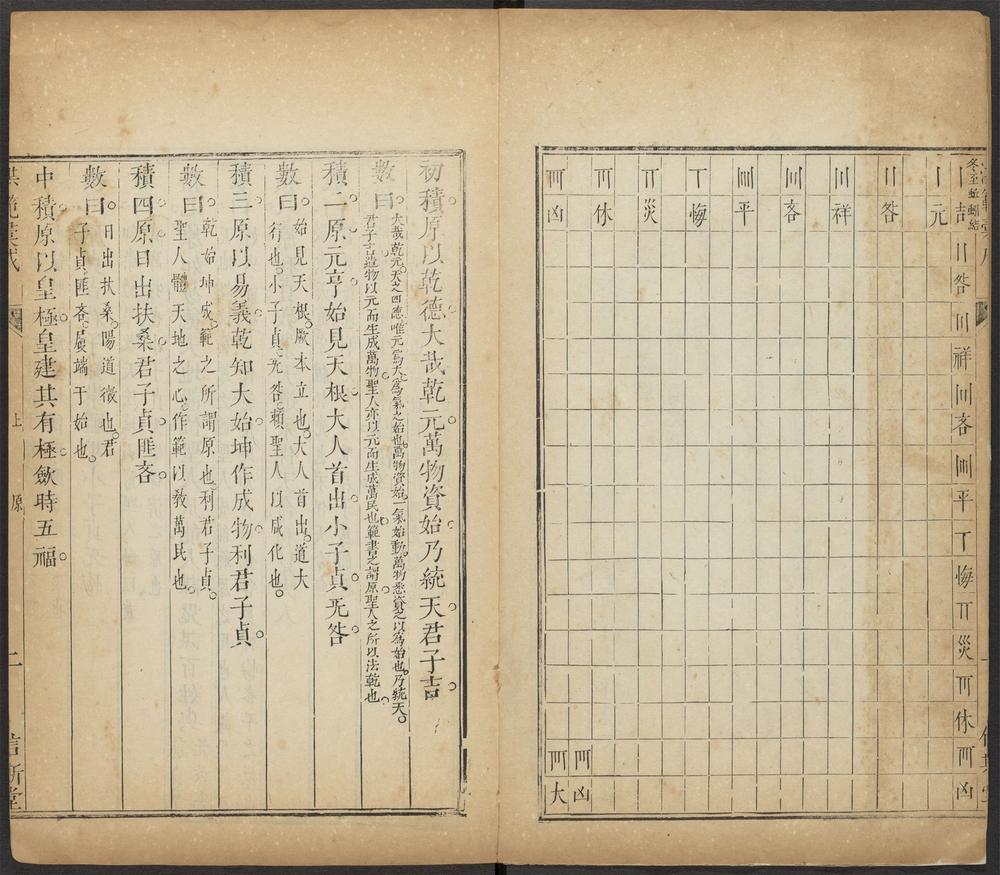 冬至 蚯蚓結
𝍠吉𝍡咎𝍢祥𝍣吝𝍤平𝍥悔𝍦災𝍧休𝍨凶
𝍠元
𝍡咎
𝍢祥
𝍣吝
𝍤平
𝍥悔
𝍦災
𝍧休
𝍨凶
𝍨凶
𝍨大
初積原以乾德大哉乾元萬物資始乃統天君子吉
數曰大哉乾元天之四德唯元為大為氣之始也萬物資始一氣始動萬物悉資之以為始也乃統天
君子吉造物以元而生成萬物聖人亦以元而生成萬民也範書之謂原聖人之所以法乾也
積二原元亨始見天根大人首出小子貞无咎
數曰始見天根厥本立也大人首出道大
行也小子貞无咎賴聖人以咸化也
積三原以易義乾知大始坤作成物利君子貞
數曰乾始坤成範之所謂原也利君子貞
聖人體天地之心作範以教萬民也
積四原日出扶桑君子貞匪吝
數曰日出扶桑陽道徵也君
子貞匪吝履端于始也
中積原以皇極皇建其有極斂時五福
上 原
二